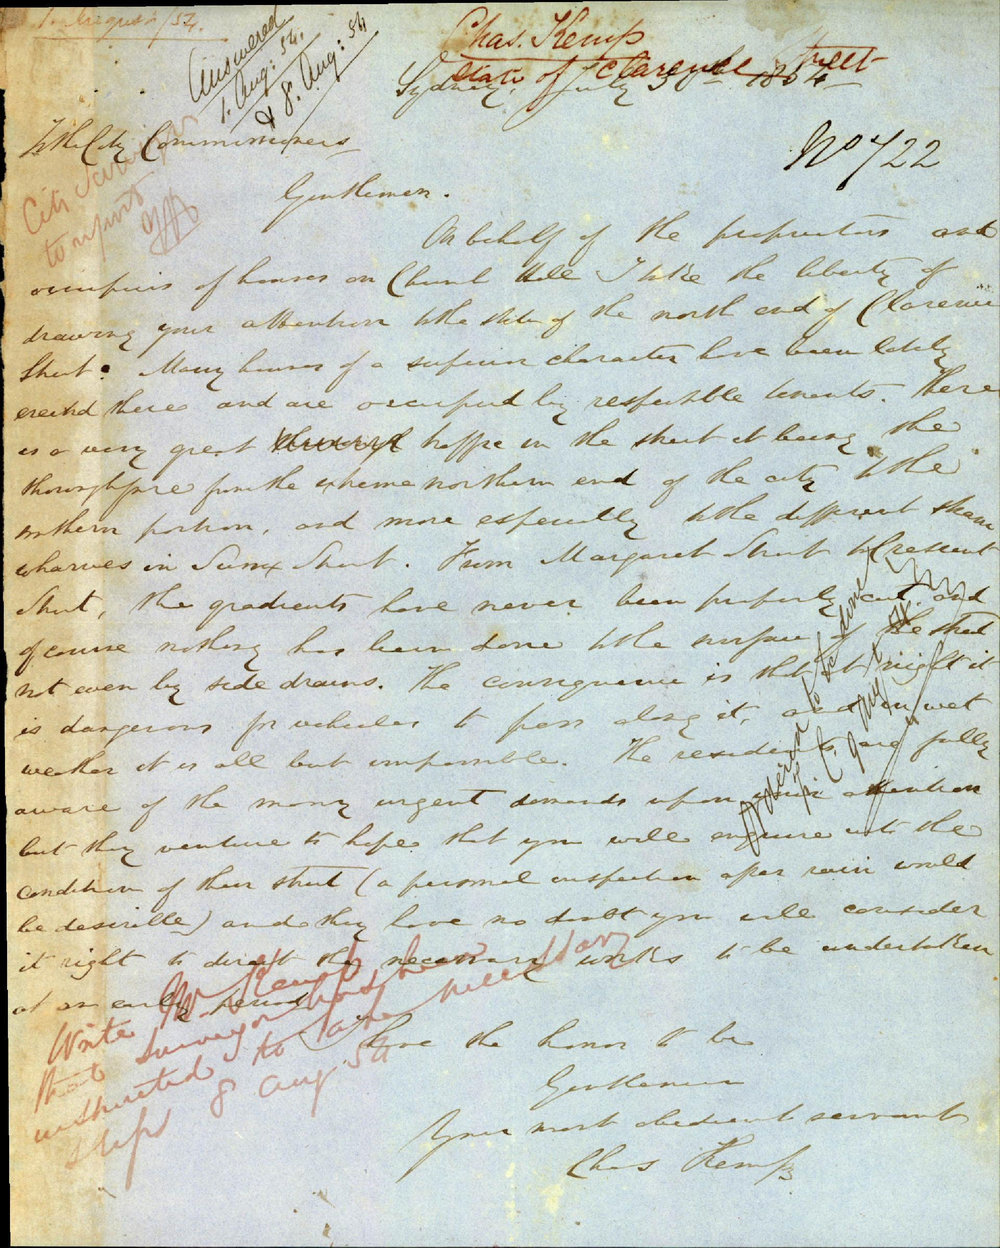 1 August/54.
Answered
1. Aug: 54.
& 8. Aug: 54
Chas. Kemp
State of Clarence Street
Sydney. July 1854
No 722
To the City Commissioners
City Surveyor
to report
Gentlemen.
On behalf of the proprietors and
occupiers of houses on Church Hill I take the liberty of
drawing your attention to the state of the north end of Clarence
Street. Many houses of a superior character have been lately
erected there and are occupied by respectable tenants. There
is a very great traffic in the street it being the
thoroughfare from the extreme northern end of the city to the
southern portion, and more especially to the different steam
wharves in Sussex Street. From Margaret Street to Crescent
Street, the gradients have never been properly cut and
of course nothing has been done to the surface of the street
not even by side drains. The consequence is that at night it
is dangerous for vehicles to pass along it, and in wet
weather it is all but impassable. The residents are fully
aware of the many urgent demands upon your attention
but they venture to hope that you will enquire into the
condition of their street (a personal inspection after rain would
be desirable) and they have no doubt you will consider
it right to direct the necessary works to be undertaken
at an early period
Ordered to be done
Write Mr. Kemp
that surveyor has been
instructed to take necessary
steps 8 Aug 54
I have the honor to be
Gentlemen
Your most obedient servant
Chas Kemp